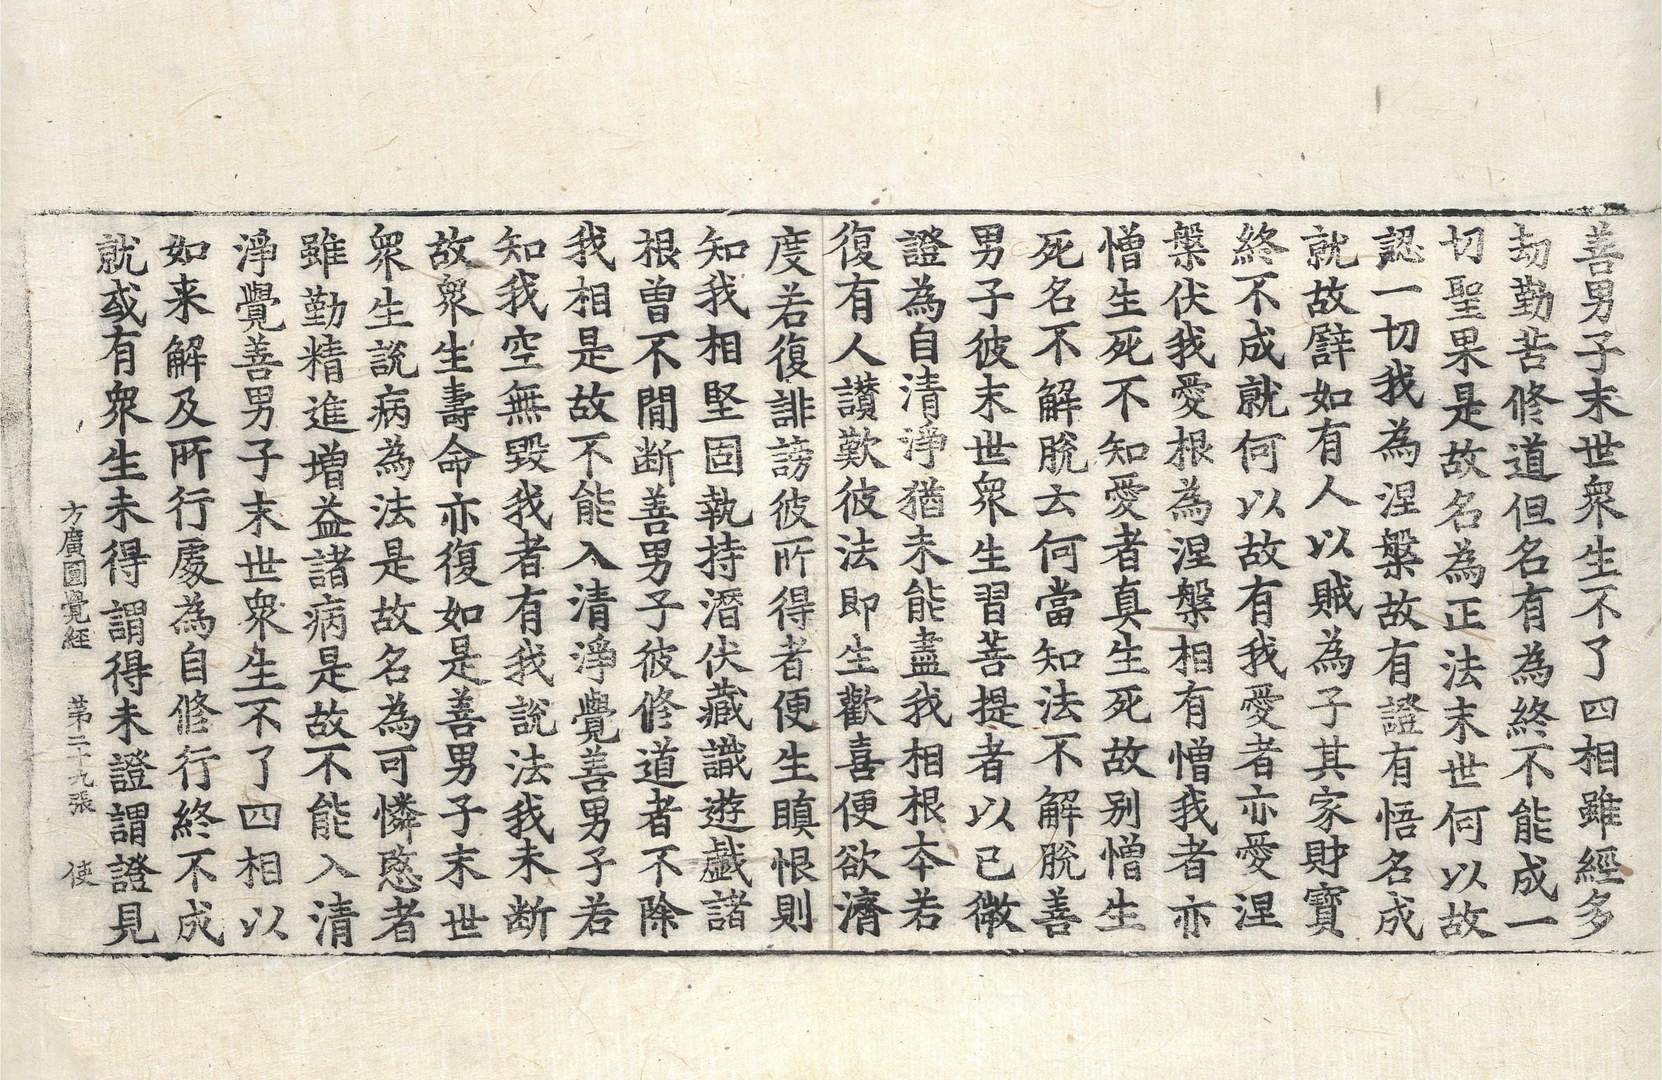 善男子末世衆生不了四相雖經多
劫勤苦修道但名有為終不能成一
切聖果是故名為正法末世何以故
認一切我為涅槃故有證有悟名成
就故譬如有人以賊為子其家財寶
終不成就何以故有我愛者亦愛涅
槃伏我愛根為涅槃相有憎我者亦
憎生死不知愛者真生死故别憎生
死名不解脫云何當知法不解脫善
男子彼末世衆生習菩提者以己微
證為自清淨猶未能盡我相根本若
復有人讃歎彼法即生歡喜便欲濟
度若復誹謗彼所得者便生瞋恨則
知我相堅固執持潛伏藏識遊戲諸
根曾不閒断善男子彼修道者不除
我相是故不能入清淨覺善男子若
知我空無毀我者有我說法我未断
故衆生壽命亦復如是善男子末世
衆生說病為法是故名為可憐愍者
雖勤精進增益諸病是故不能入清
淨覺善男子末世衆生不了四相以
如来解及所行處為自修行終不成
就或有衆生未得謂得未證謂證見
方廣圓覺經 第二十九張 使